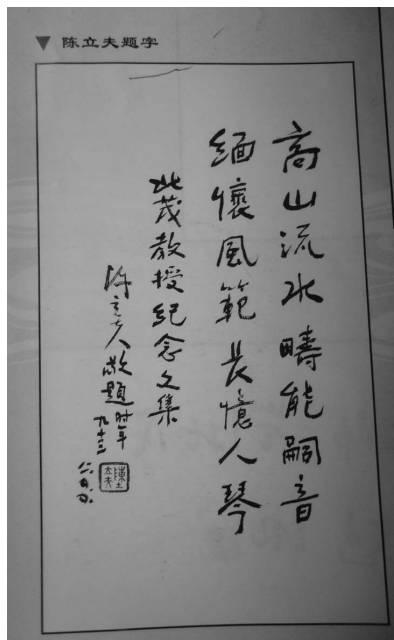 陈立夫题字
高山流水疇能嗣音
緬懷風範長憶人琴
此茂教授紀念文集
陳立夫敬題时年
九十三